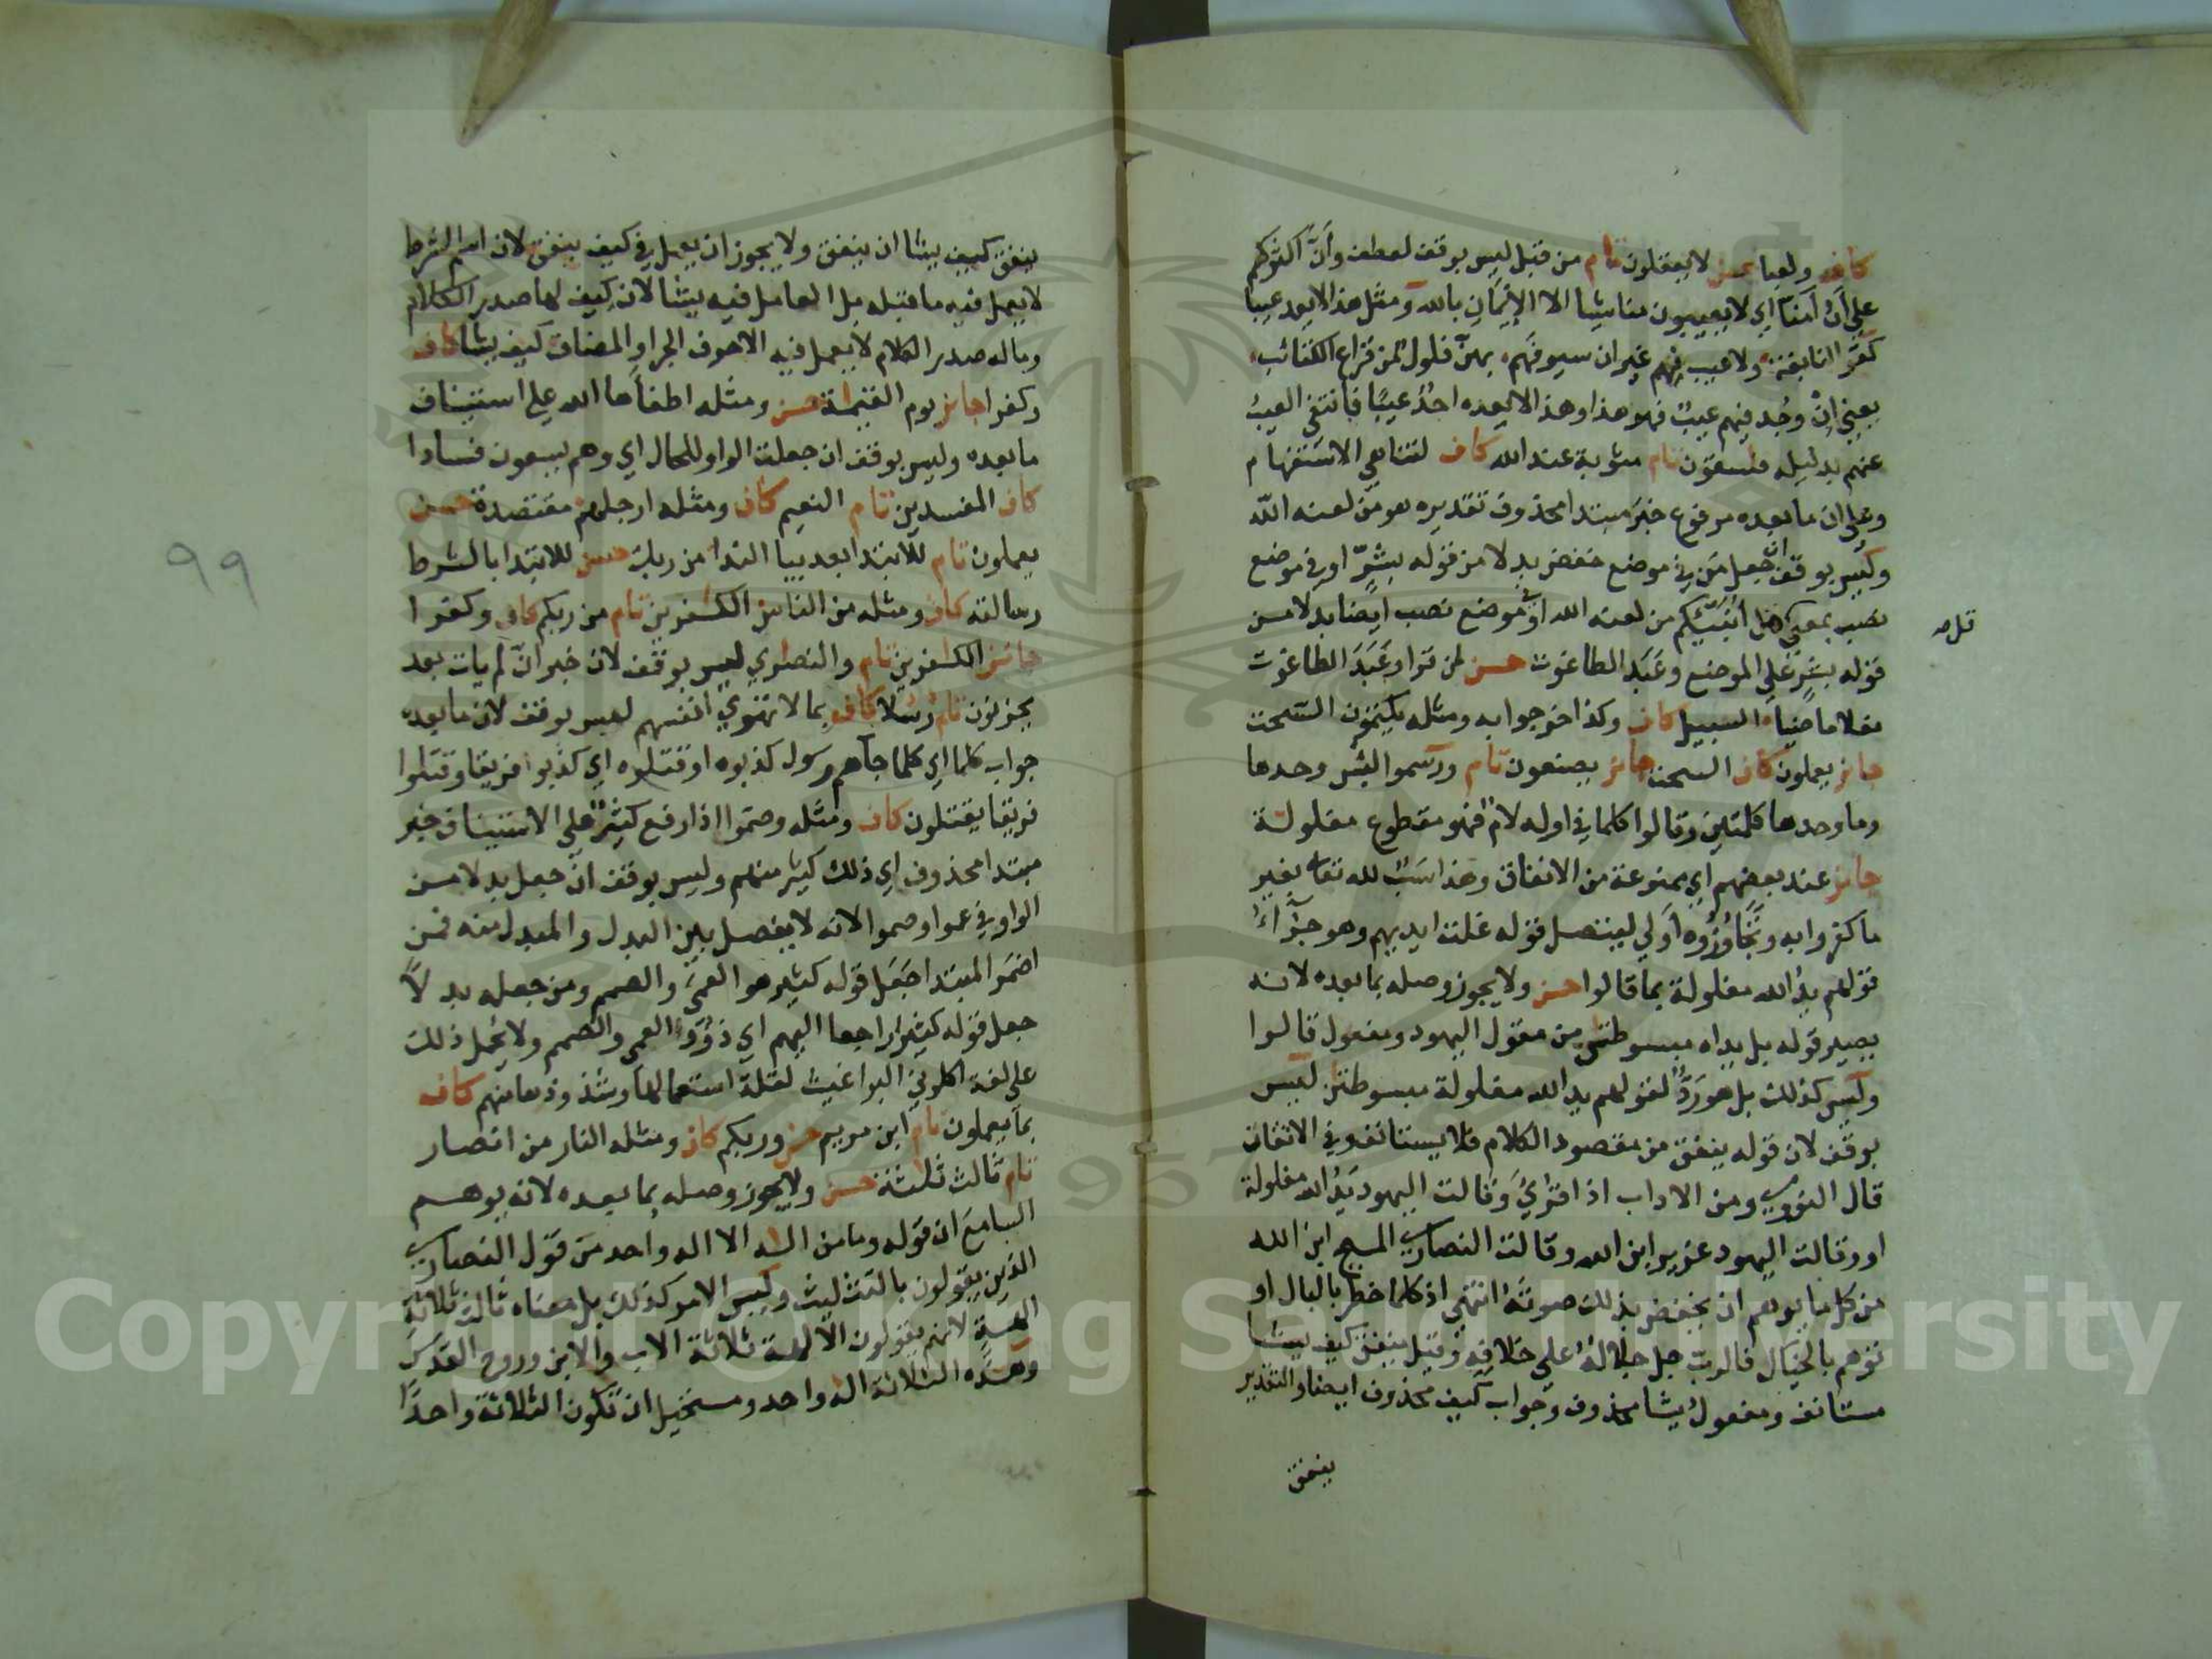 كاف ولعبا حسن لا يعقلون تام من قبل ليس بوقف لعطف وأنّ أكثركم
على أن آمنا اي لا يعيبون منا شيئا الا الإيمان بالله ومثل هذا لا يعد عيبا
كقول النابغة ولا عيب فيهم غير ان سيوفهم بهن فلول من قراع الكتائب
يعني إنْ وجُد فيهم عيبٌ فهو هذا وهذا لا يعده احدٌ عيبًا فانتفى العيبُ
عنهم بدليله فسقون تام مثوبة عند الله كاف لتناهي الاستفهام
وعلى ان ما بعده مرفوع خبر مبتدا محذوف تقديره هو من لعنه الله
وليس بوقف ان جعل مَن في موضع خفض بدلا من قوله بشرّ او في موضع
نصب بمعنى هل أنبّئكم من لعنه الله او في موضع نصب ايضا بدلا من
قل ص
قوله بشرٍّ على الموضع وعَبَد الطاغوت حسن لمن قرا وعَبَدَ الطاغوت
فعلا ماضيا السبيل كاف وكذا خرجوا به ومثله يكتمون السحت
جايز يعملون كاف السحت جايز يصنعون تام ورسموا لبئس وحدها
وما وحدها كلمتين وقالوا كلما في اوله لام فهو مقطوع مغلولة
جايز عند بعضهم اي ممنوعة من الانفاق وهذا سَبٌّ لله تعالى بغير
ما كفروا به وتَجَاوُزُوه أولى ليتصل قوله غلت ايديهم وهو جزَآءُ
قولهم يدُ الله مغلولة بما قالوا حسن ولا يجوز وصله بما بعده لانه
يصير قوله بل يداه مبسوطتن من مقول اليهود ومفعول قالوا
وليس كذلك بل هو رَدٌّ لقولهم يد الله مغلولة مبسوطتن ليس
بوقف لان قوله ينفق من مقصود الكلام فلا يستانف وفي الاتقان
قال النووي ومن الاداب اذا قرأ وقالت اليهود يَدُ الله مغلولة
او وقالت اليهود عزير ابن الله وقالت النصارى المسيح ابن الله
من كل ما يوهم ان يخفض بذلك صوته انتهى اذ كلما خطر بالبال او
توهم بالخيال فالرب جل جلاله على خلافه وقيل ينفق كيف يشا
مستانف ومفعول يشا محذوف وجواب كيف محذوف ايضا والتقدير
ينفق
ينفق كيف يشا ان ينفق ولا يجوز ان يعمل في كيف ينفق لان اسم الشرط
لا يعمل فيه ما قبله بل العامل فيه يشا لان كيف لها صدر الكلام
وما له صدر الكلام لا يعمل فيه الا حرف الجر او المضاف كيف يشا كاف
وكفرا جايز يوم القيمة حسن ومثله اطفأها الله على استيناف
ما بعده وليس بوقف ان جعلت الواو للحال اي وهم يسعون فسادا
كاف المفسدين تام النعيم كاف ومثله ارجلهم مقتصدة حسن
يعملون تام للابتدا بعد بيا الندا من ربك حسن للابتدا بالشرط
رسالته كاف ومثله من الناس الكفرين تام من ربكم كاف وكفرا
جايز الكفرين تام والنصارى ليس بوقف لان خبر انّ لم يات بعد
يحزنون تام رسلا كاف بما لا تهوى انفسهم ليس بوقف لان ما بعده
جواب كلما اي كلما جآهم رسول كذبوه او قتلوه اي كذبوا فريقا وقتلوا
فريقا يقتلون كاف ومثله وصموا اذا رفع كثير على الاستيناف خبر
مبتدا محذوف اي ذلك كثير منهم وليس بوقف انْ جعل بدلا من
الواو في عموا وصموا لانه لا يفصل بين البدل والمبدل منه فمن
اضمر المبتدا جعل قوله كثير هو العمى والصمم ومن جعله بدلاً
جعل قوله كثيرا راجعا اليهم اي ذوُو العمى والصمم ولا يحمل ذلك
على لغة اكلوني البراغيث لقلة استعمالها وشذوذها منهم كاف
بما يعملون تام ابن مريم حسن وربكم كاف ومثله النار من انصار
تام ثالث ثلثة حسن ولا يجوز وصله بما بعده لانه يوهم
السامع ان قوله وما من اله الا اله واحد من قول النصارى
الذين يقولون بالتثليث وليس الامر كذلك بل معناه ثالث ثلاثة
الهة لانهم يقولون الآلهة ثلاثة الاب والابن وروح القدس
وهذه الثلاثة اله واحد ومستحيل ان تكون الثلاثة واحدًا
٩٩
Copyright © King Saud University
1957